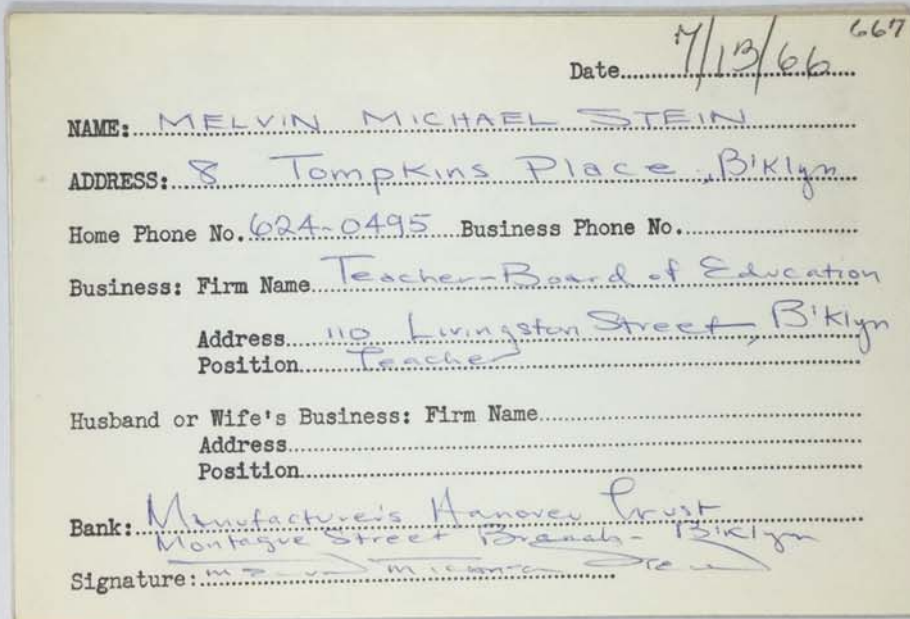 667
Date 7/13/66
NAME: MELVIN MICHAEL STEIN
ADDRESS: 8 Tompkins Place, B'klyn
Home Phone No. 624-0495 Business Phone No.
Business: Firm Name Teacher-Board of Education
Address 110 Livingston Street, B'klyn
Position Teacher
Husband or Wife's Business: Firm Name
Address
Position
Bank: Manufacturer's Hanover Trust
Montague Street Branch - B'klyn
Signature: Melvin Michael Stein